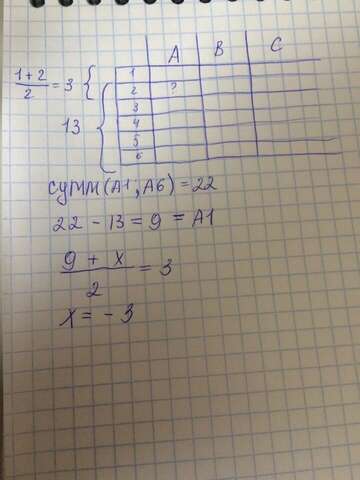 A B C
1+2
2
= 3 { 1
2 ?
3
13 { 4
5
6
сумм(A1;A6) = 22
22 - 13 = 9 = A1
9 + x
2
= 3
x = - 3